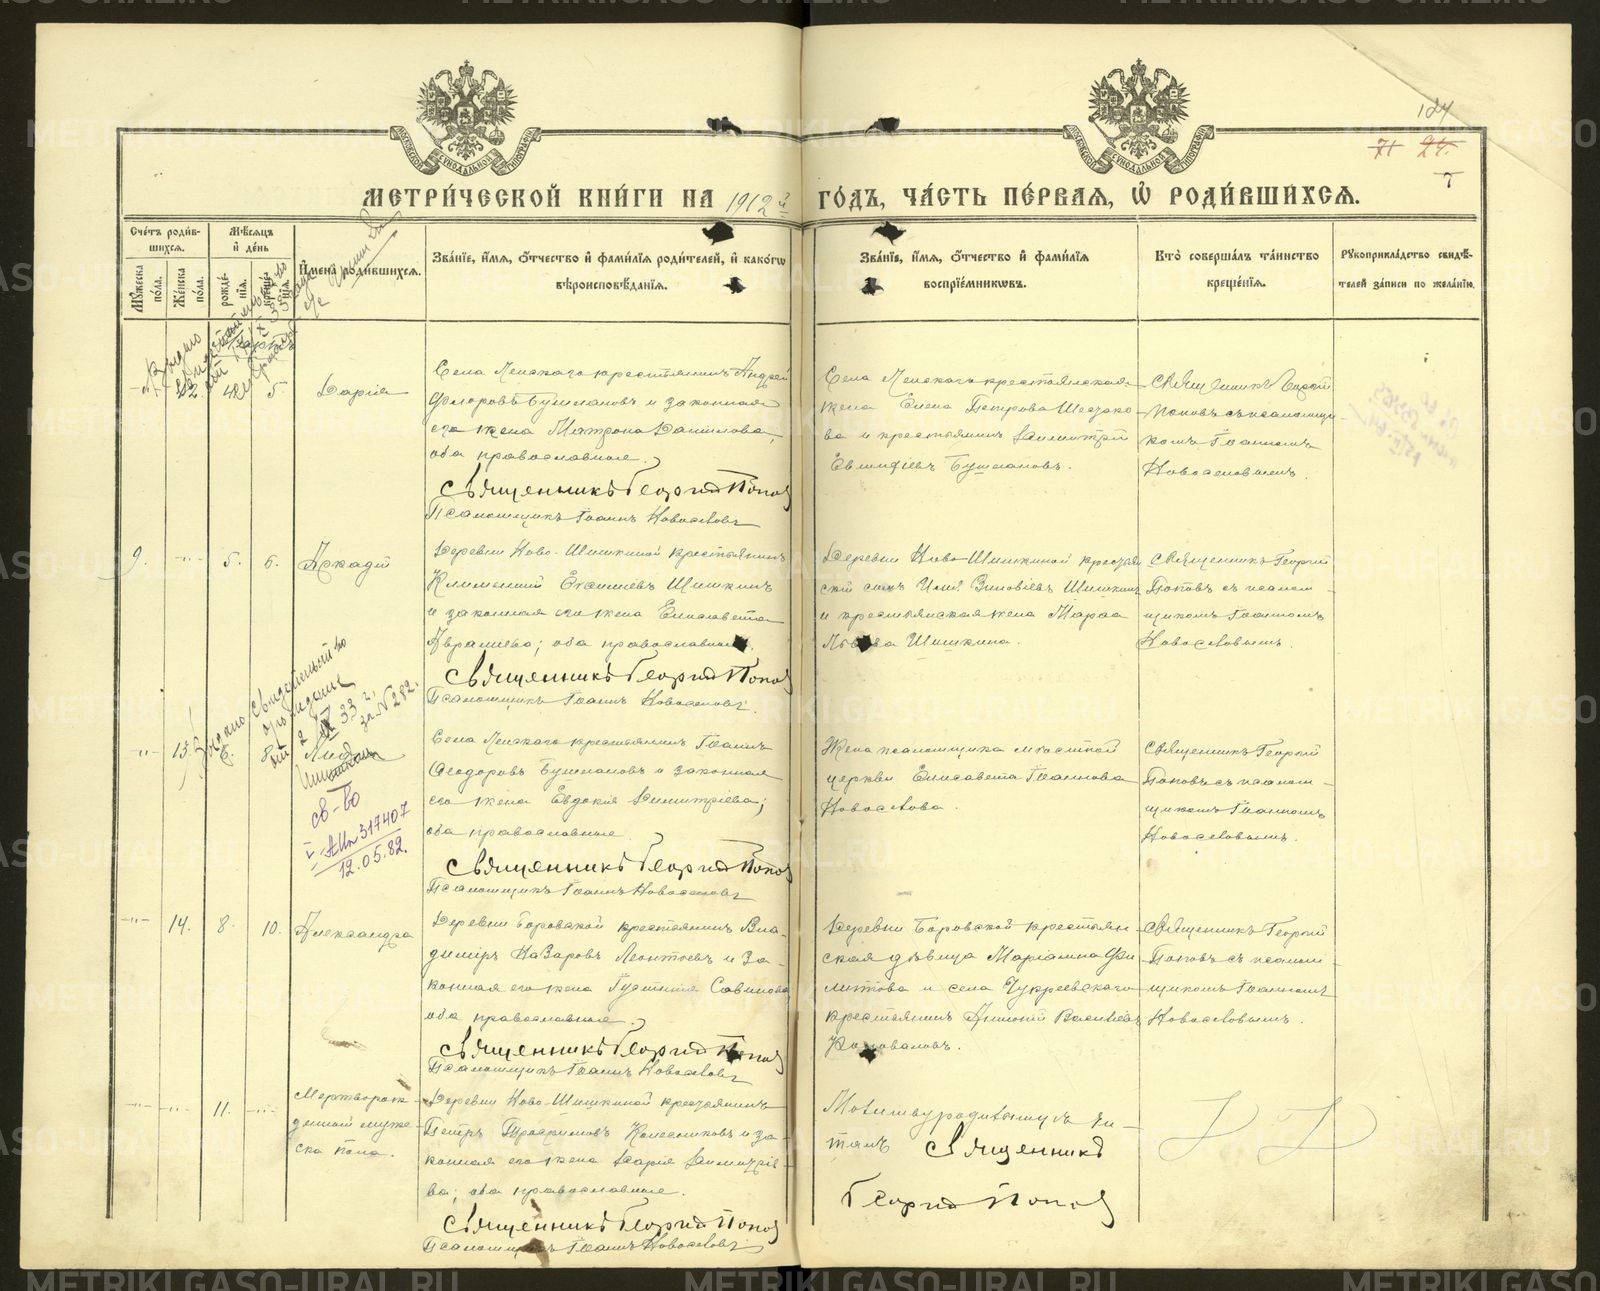 124
71 24.
МОСКОВСКОЙ СѴНОДАЛЬНОЙ ТИПОГРАФІИ
МОСКОВСКОЙ СѴНОДАЛЬНОЙ ТИПОГРАФІИ
МЕТРИ́ЧЕСКОЙ КНИ́ГИ НА 1912й ГО́ДЪ, ЧА́СТЬ ПЕ́РВАЯ, Ѡ҆ РОДИ́ВШИХСЯ.
Сче́тъ роди́в-
шихся.
Мѣ́сяцъ
и҆ де́нь
Му́жеска
по́ла.
Же́нска
по́ла.
рожде́-
нїя.
креще́-
нїя.
И҆мена̀ роди́вшихся.
Зва́нїе, и҆́мя, ѻ҆́тчество и҆ фами́лїя роди́телей, и҆ како́гѡ
вѣроисповѣ́данїя.
Зва́нїе, и҆́мя, ѻ҆́тчество и҆ фами́лїя
воспрїе́мникѡвъ.
Кто̀ соверша́лъ та́инство
креще́нїя.
Рꙋкоприкла́дство свидѣ́-
телей за́писи по жела́нїю.
Мартъ
12. 4. 5. Дарія
Села Ленскаго крестьянинъ Андрей
Ѳедоровъ Бушлановъ и законная
его жена Матрона Данилова,
оба православные.
Священникъ Георгій Попов
Псаломщикъ Іоаннъ Новоселовъ
Села Ленскаго крестьянская
жена Елена Петрова
ва и крестьянинъ Димитрій
Евѳиміевъ Бушлановъ.
Священникъ Георгій
Поповъ съ псаломщи
комъ Іоанномъ
Новоселовымъ.
9. -"- 5. 6. Аркадій
Деревни Ново-Шишкиной крестьянинъ
Климентій Шишкинъ
и законная его жена Елисавета
Авраміева; оба православные.
Священникъ Георгій Попов
Псаломщикъ Іоаннъ Новоселовъ.
Деревни Ново-Шишкиной крестьян
скій сынъ Зиновіевъ Шишкинъ
и крестьянская жена Марѳа
Львова Шишкина.
Священникъ Георгій
Поповъ съ псалом-
щикомъ Іоанномъ
Новоселовымъ.
-"- 13. 6. 8. Лидія
за №282.
св-во
I-АИ№317407
12.05.82.
Села Ленскаго крестьянинъ Іоаннъ
Ѳеодоровъ Бушлановъ и законная
его жена Евдокія Димитріева;
оба православные.
Священникъ Георгій Попов
Псаломщикъ Іоаннъ Новоселовъ
Жена псаломщика мѣстной
церкви Елисавета Іоаннова
Новоселова.
Священникъ Георгій
Поповъ съ псалом-
щикомъ Іоанномъ
Новоселовымъ.
-"- 14. 8. 10. Александра
Деревни Боровской крестьянинъ Вла-
диміръ Назаровъ Леонтьевъ и за-
конная его жена Іустинія Савинова,
оба православные.
Священникъ Георгій Попов
Псаломщикъ Іоаннъ Новоселовъ
Деревни Боровской крестьян-
ская дѣвица Маріамна Фи
липпова и села Чукреевскаго
крестьянинъ Антоній Васильевъ
Коноваловъ.
Священникъ Георгій
Поповъ съ псалом-
щикомъ Іоанномъ
Новоселовымъ.
-"- -"- 11. -"- Мертворож-
денный муже-
ска пола.
Деревни Ново-Шишкиной крестьянинъ
Петръ Трофимовъ Колесниковъ и за-
конная его жена Дарія Димитріе-
ва; оба православные.
Священникъ Георгій Попов
Псаломщикъ Іоаннъ Новоселовъ
Молитву родильницѣ чи-
талъ Священникъ
Георгій Попов
METRIKI.GASO-URAL.RU